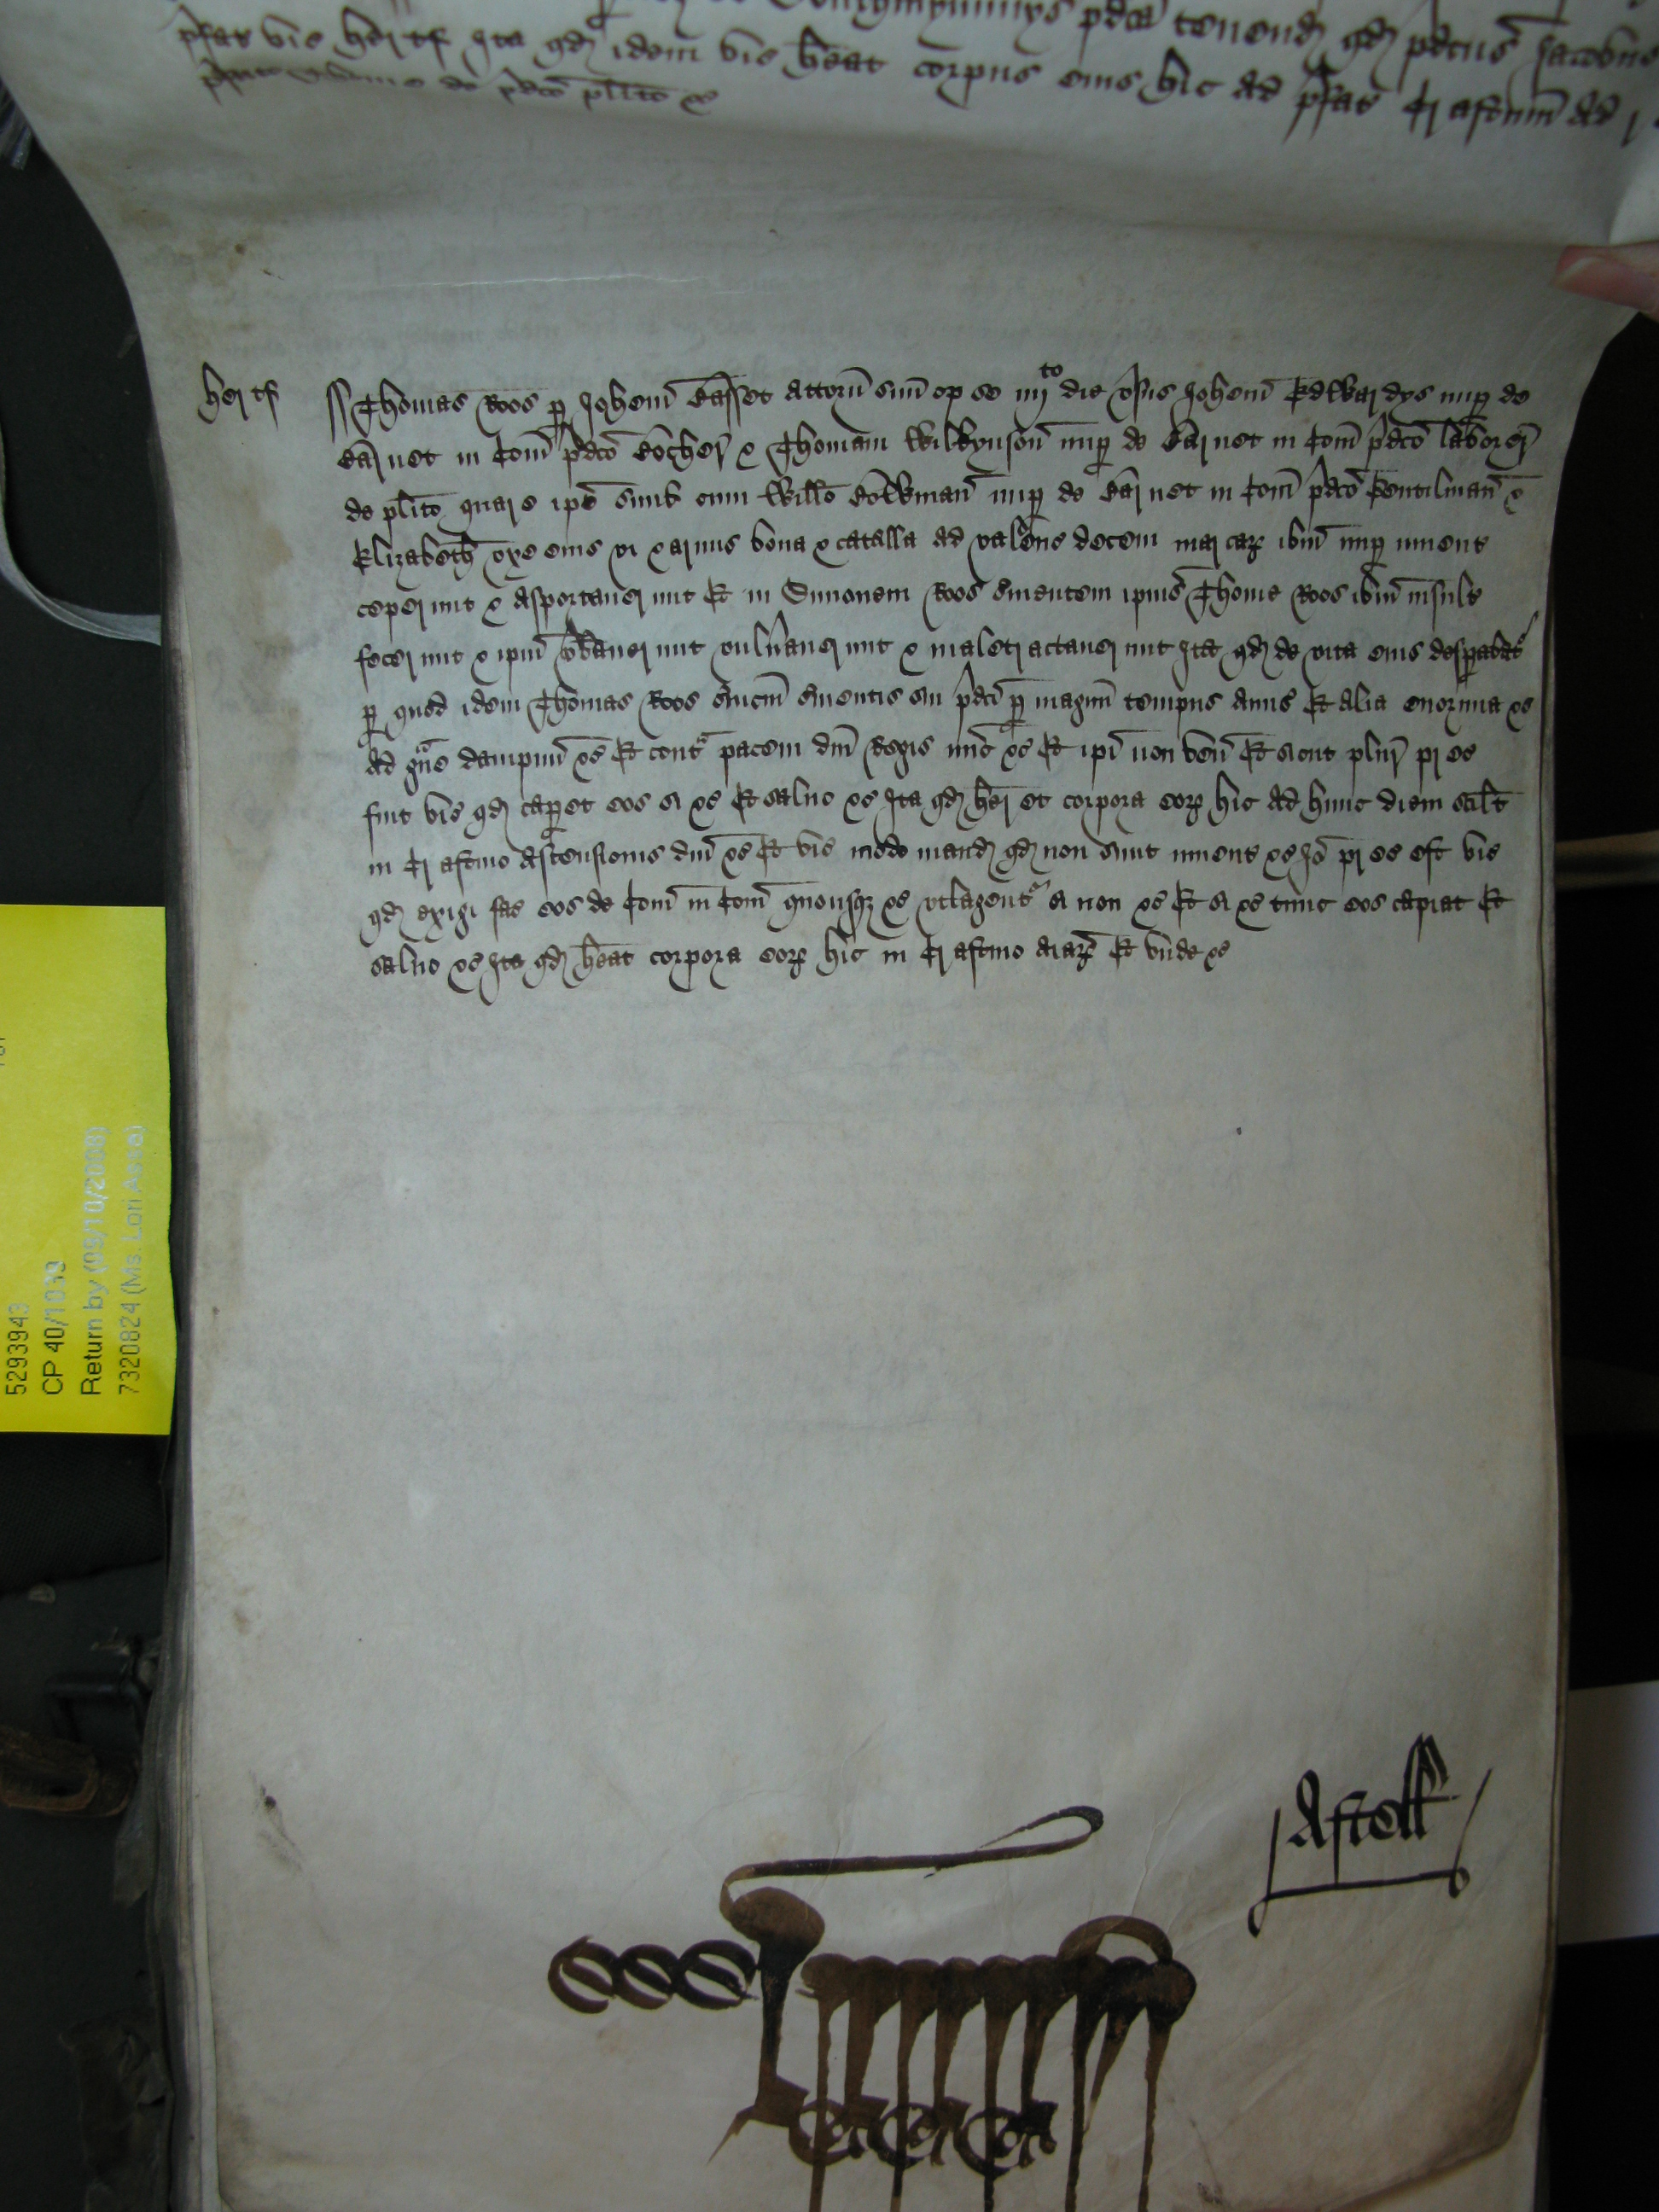 pdca tenend qd pdcus Jacobus
pfat vic Hertf Ita qd idem vic heat corpus eius hic ad pfat Crastinum ad
de pdco plito &c
Hertf
Thomas Roos p Johem Basset attorn suu op se iiijto die vsus Johem Edwardys nup de
Barnet in Com pdco Bocher & Thomam Wilkynson nup de Barnet in Com pdco laborer
de plito quare ipi simul cum Willo Bowman nup de Barnet in Com pdco Gentilman &
Elizabeth vxe eius vi & armis bona & catalla ad valenc decem marcar ibm nup inuent
ceperunt & asportauerunt Et in Simonem Roos seruientem ipius Thome Roos ibm insult
fecerunt & ipm vbauerunt vulnauerunt & maletractauerunt Ita qd de vita eius despabat
p quod idem Thomas Roos seruicm seruientis sui pdci p magnu tempus amis Et alia enormia &c
ad gue dampnu &c Et cont pacem dni Regis nuc &c Et ipi non ven Et sicut plur pc
fuit vic qd capet eos si &c Et saluo &c Ita qd heret corpora eor hic ad hunc diem scilt
in Crastino Ascensionis dni &c Et vic modo mand qd non sunt inuent &c Io pc est vic
qd exigi fac eos de Com in Com quousq &c vtlagent si non &c Et si &c tunc eos capiat Et
saluo &c Ita qd heat corpora eor hic in Crastino aiar Et vnde &c
Astell
5293943
CP 40/1039
Return by (09/10/2008)
7320824 (Ms. Lori Asse)